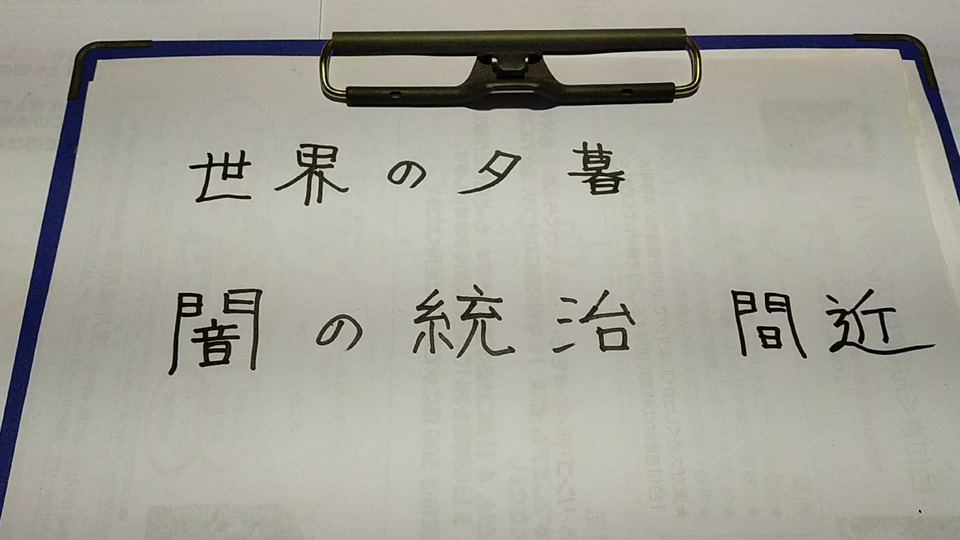 世界の夕暮
闇の統治 間近